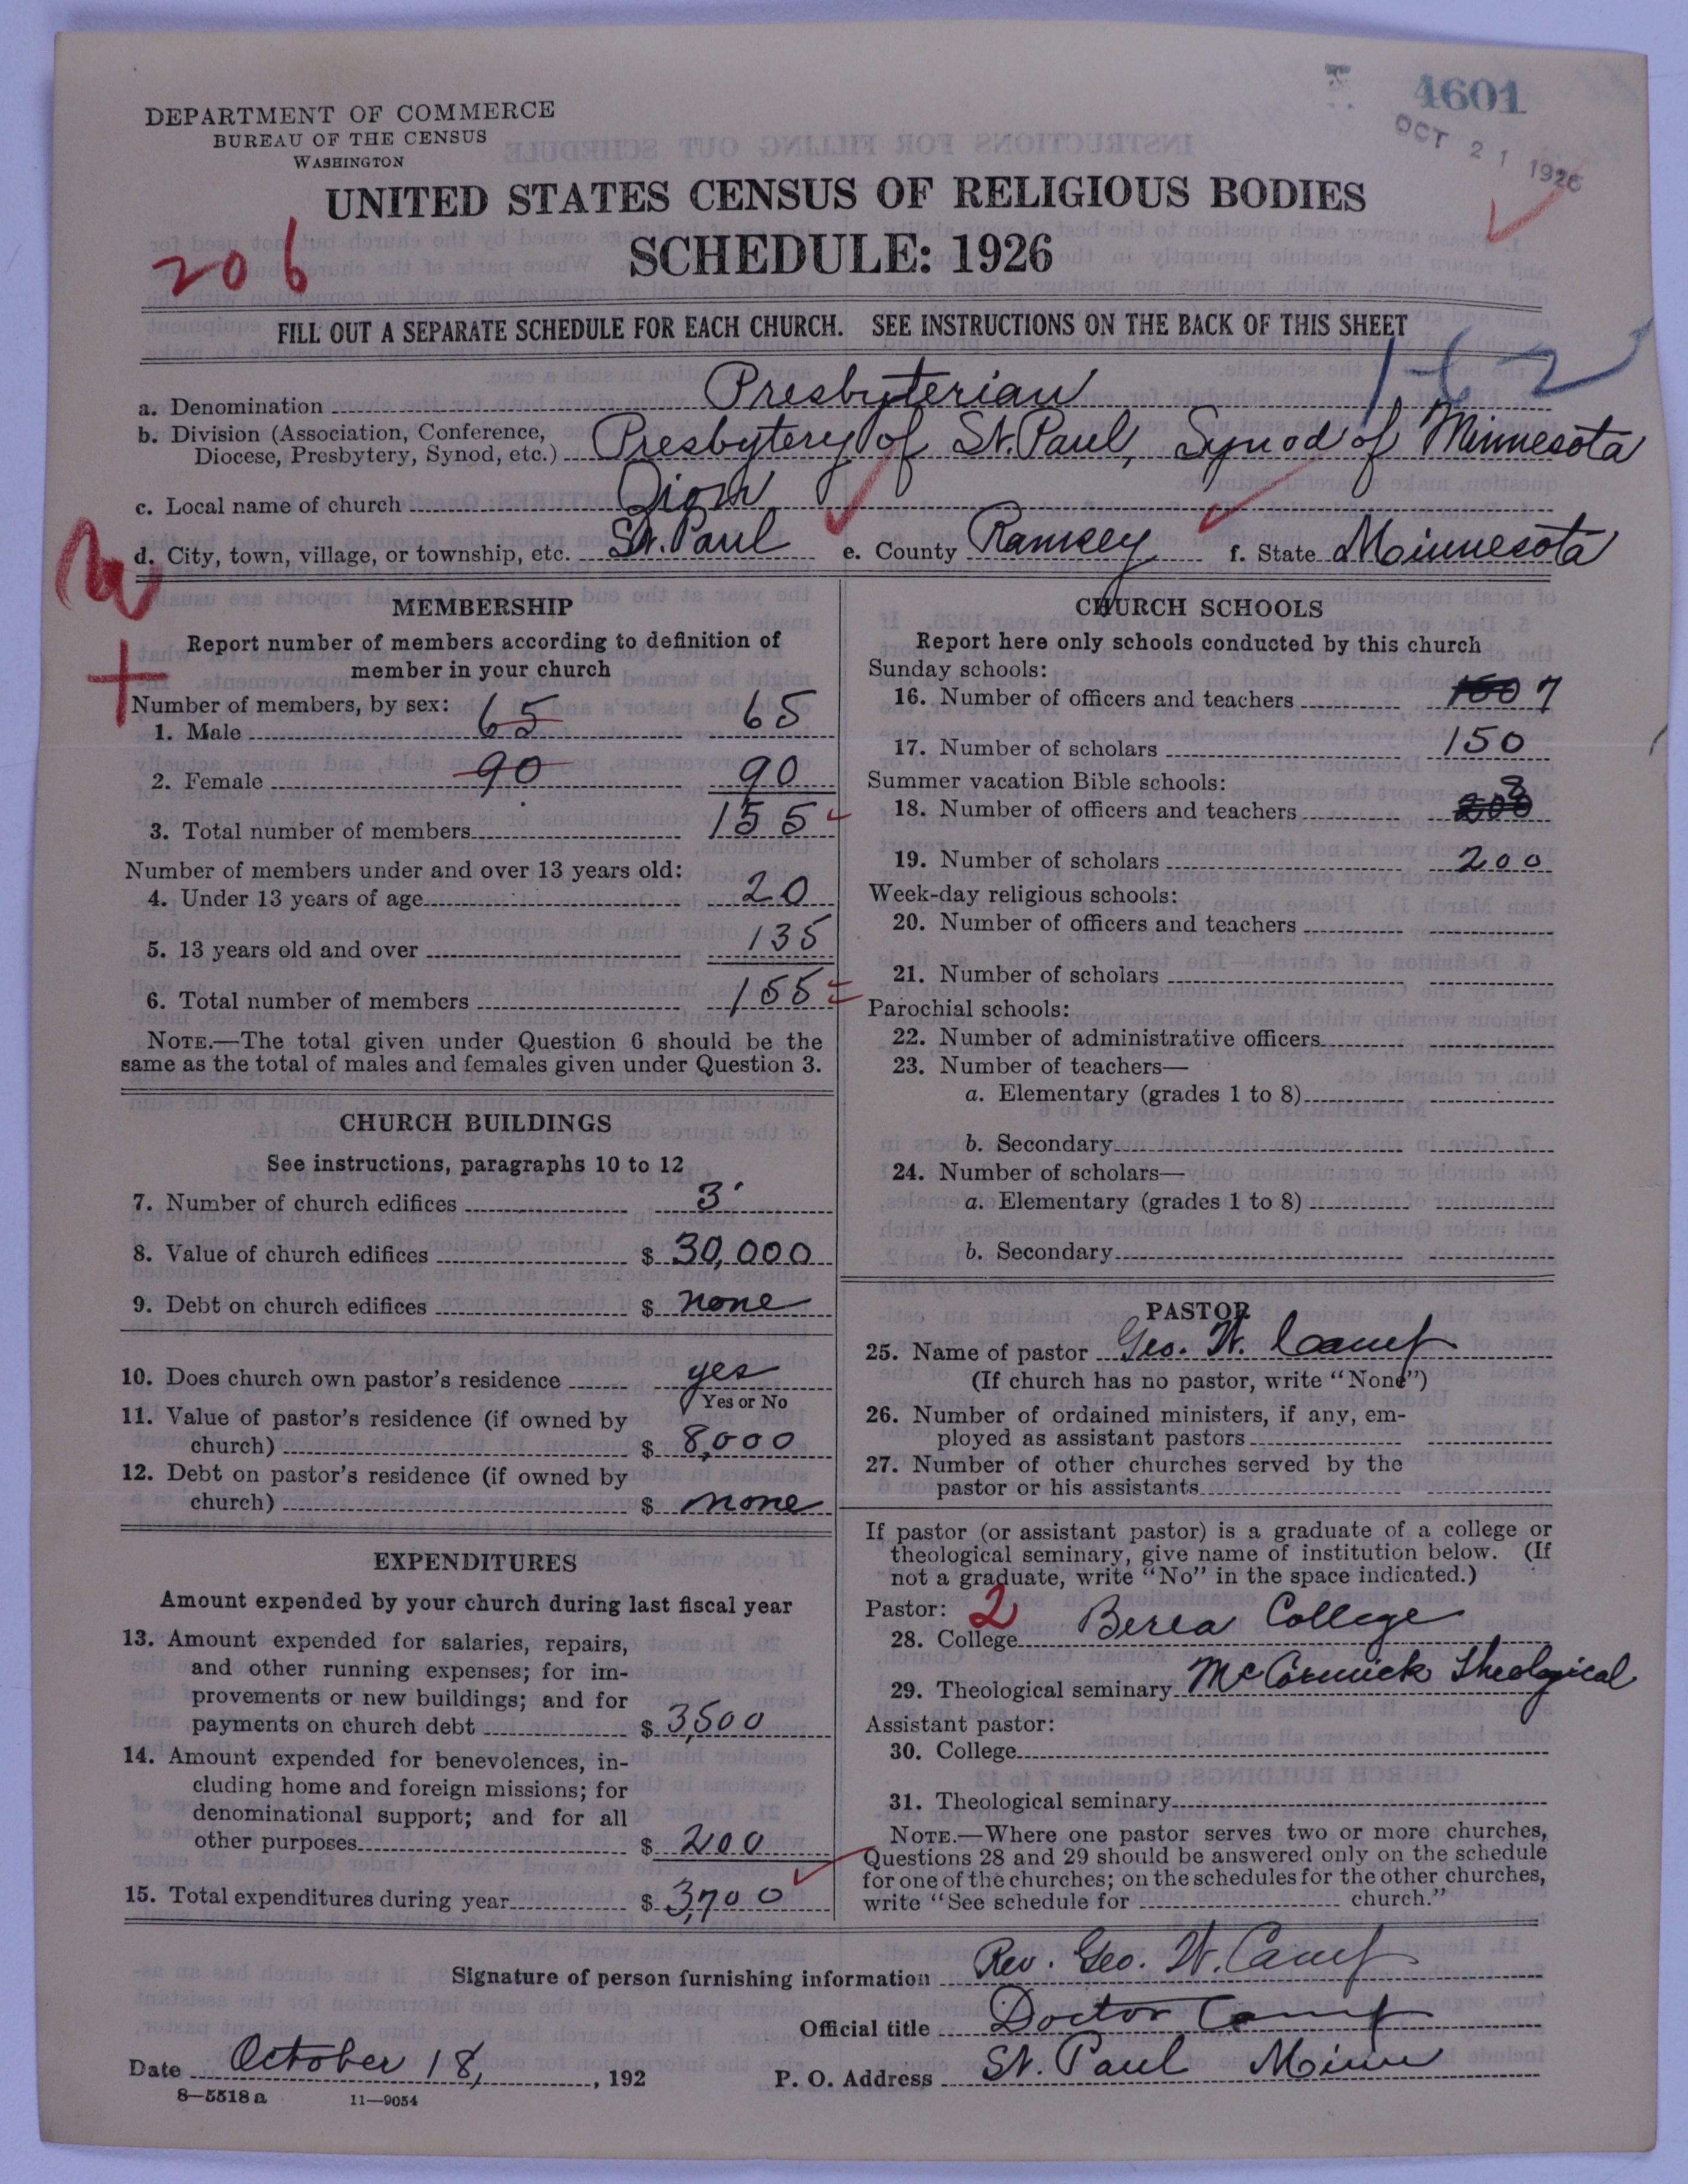 4601
OCT 21 1926
DEPARTMENT OF COMMERCE
BUREAU OF THE CENSUS
WASHINGTON
UNITED STATES CENSUS OF RELIGIOUS BODIES
SCHEDULE: 1926
206
FILL OUT A SEPARATE SCHEDULE FOR EACH CHURCH. SEE INSTRUCTIONS ON THE BACK OF THIS SHEET
1-62
a. Denomination Presbyterian
b. Division (Association, Conference, Diocese, Presbytery, Synod, etc.) Presbytery of St. Paul, Synod of Minnesota
c. Local name of church Zion
d. City, town, village, or township, etc. St. Paul e. County Ramsey f. State Minnesota
MEMBERSHIP
Report number of members according to definition of
member in your church
Number of members, by sex:
1. Male 65 65
2. Female 90 90
3. Total number of members 155
Number of members under and over 13 years old:
4. Under 13 years of age 20
5. 13 years old and over 135
6. Total number of members 155
NOTE.—The total given under Question 6 should be the
same as the total of males and females given under Question 3.
CHURCH BUILDINGS
See instructions, paragraphs 10 to 12
7. Number of church edifices 3
8. Value of church edifices $ 30,000
9. Debt on church edifices $ none
10. Does church own pastor's residence yes
Yes or No
11. Value of pastor's residence (if owned by
church) $ 8,000
12. Debt on pastor's residence (if owned by
church) $ none
EXPENDITURES
Amount expended by your church during last fiscal year
13. Amount expended for salaries, repairs,
and other running expenses; for im-
provements or new buildings; and for
payments on church debt $ 3,500
14. Amount expended for benevolences, in-
cluding home and foreign missions; for
denominational support; and for all
other purposes $ 200
15. Total expenditures during year $ 3,700
CHURCH SCHOOLS
Report here only schools conducted by this church
Sunday schools:
16. Number of officers and teachers 7
17. Number of scholars 150
Summer vacation Bible schools:
18. Number of officers and teachers 3
19. Number of scholars 200
Week-day religious schools:
20. Number of officers and teachers
21. Number of scholars
Parochial schools:
22. Number of administrative officers
23. Number of teachers—
a. Elementary (grades 1 to 8)
b. Secondary
24. Number of scholars—
a. Elementary (grades 1 to 8)
b. Secondary
PASTOR
25. Name of pastor Geo. W. Camp
(If church has no pastor, write "None")
26. Number of ordained ministers, if any, em-
ployed as assistant pastors
27. Number of other churches served by the
pastor or his assistants
If pastor (or assistant pastor) is a graduate of a college or
theological seminary, give name of institution below. (If
not a graduate, write "No" in the space indicated.)
Pastor: 2
28. College Berea College
29. Theological seminary McCormick Theological
Assistant pastor:
30. College
31. Theological seminary
NOTE.—Where one pastor serves two or more churches,
Questions 28 and 29 should be answered only on the schedule
for one of the churches; on the schedules for the other churches,
write "See schedule for church."
Signature of person furnishing information Rev. Geo. W. Camp
Official title Doctor Camp
Date October 18, , 192 P. O. Address St. Paul Minn
8—5518 a 11—9054